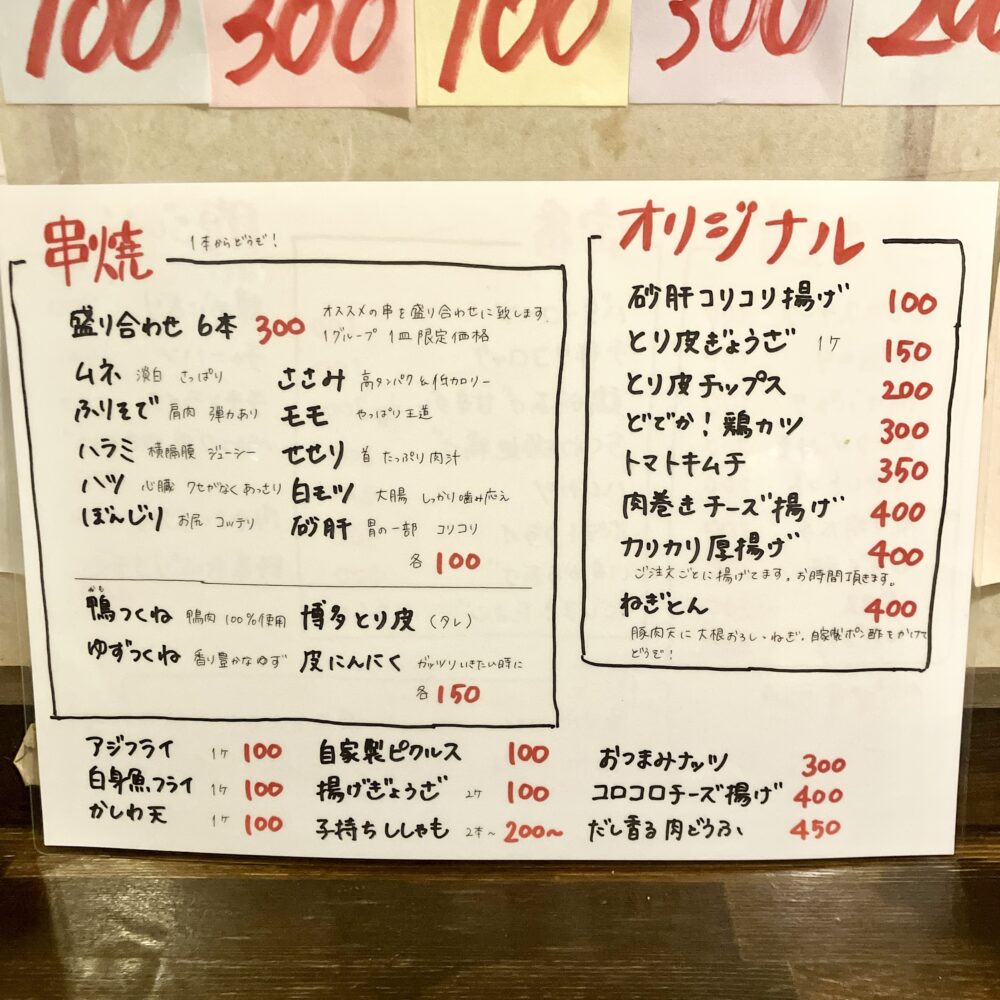 100 300 100 300 200
串焼 1本からどうぞ!
盛り合わせ 6本 300 オススメの串を盛り合わせに致します。
1グループ 1皿 限定価格
ムネ 淡白 さっぱり ささみ 高タンパク&低カロリー
ふりそで 肩肉 弾力あり モモ やっぱり王道
ハラミ 横隔膜 ジューシー せせり 首 たっぷり肉汁
ハツ 心臓 クセがなくあっさり 白モツ 大腸 しっかり噛み応え
ぼんじり お尻 コッテリ 砂肝 胃の一部 コリコリ
各100
かも
鴨つくね 鴨肉100%使用 博多とり皮 (タレ)
ゆずつくね 香り豊かなゆず 皮にんにく ガッツリいきたい時に
各150
オリジナル
砂肝コリコリ揚げ 100
とり皮ぎょうざ 1ケ 150
とり皮チップス 200
どでか!鶏カツ 300
トマトキムチ 350
肉巻きチーズ揚げ 400
カリカリ厚揚げ 400
ご注文ごとに揚げてます。お時間頂きます。
ねぎとん 400
豚肉天に大根おろし・ねぎ、自家製ポン酢をかけて
どうぞ!
アジフライ 1ケ 100 自家製ピクルス 100 おつまみナッツ 300
白身魚フライ 1ケ 100 揚げぎょうざ 2ケ 100 コロコロチーズ揚げ 400
かしわ天 1ケ 100 子持ちししゃも 2本~ 200~ だし香る肉どうふ 450